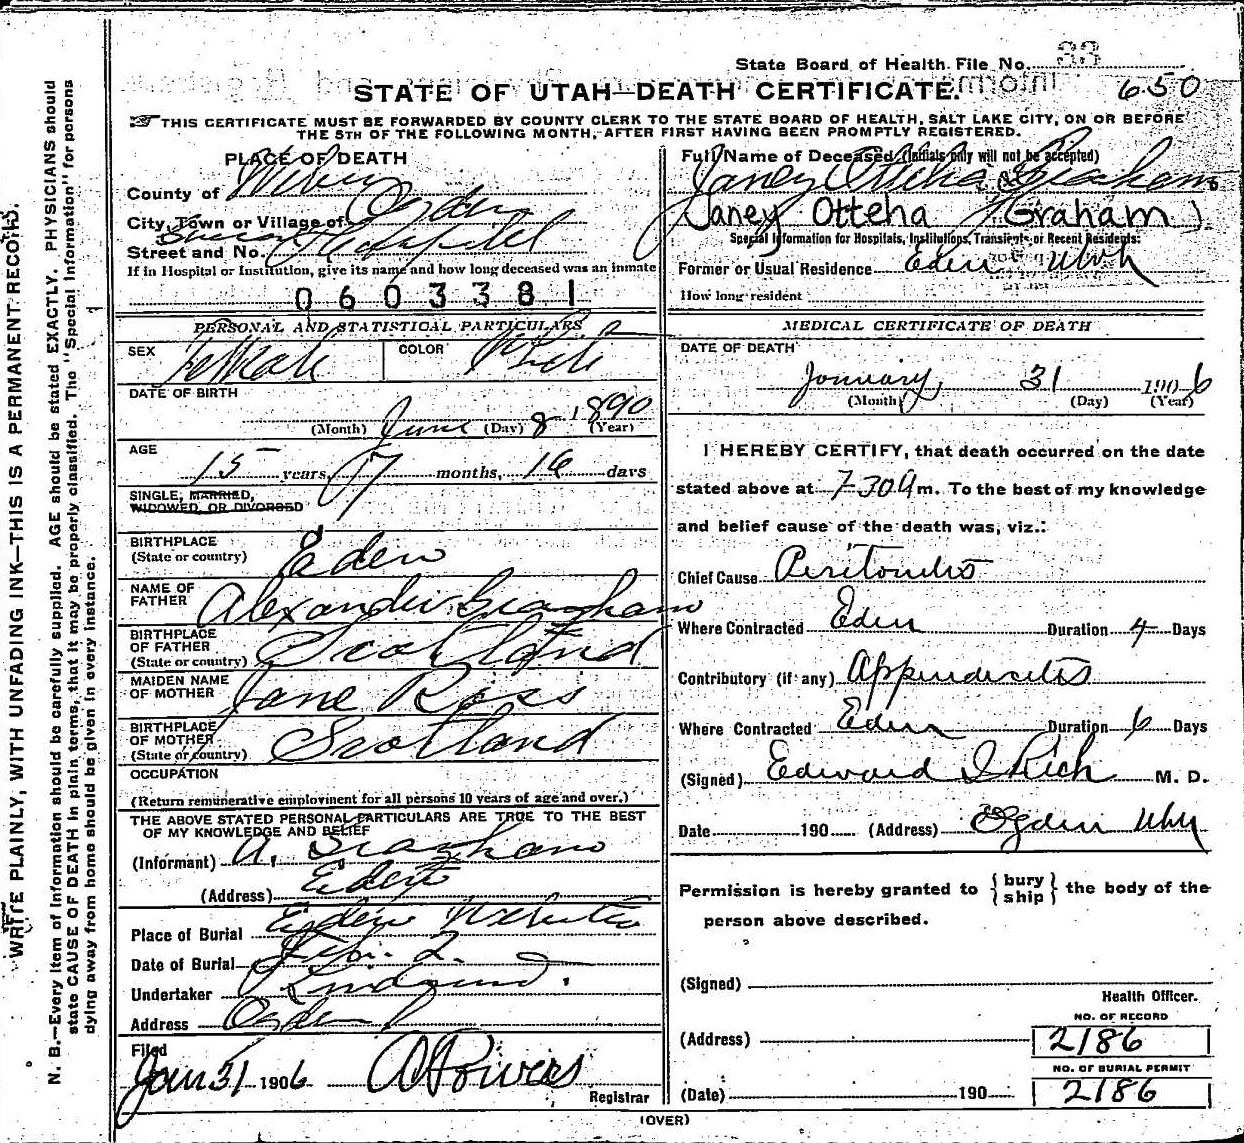 State Board of Health File No.
650
STATE OF UTAH—DEATH CERTIFICATE.
THIS CERTIFICATE MUST BE FORWARDED BY COUNTY CLERK TO THE STATE BOARD OF HEALTH, SALT LAKE CITY, ON OR BEFORE
THE 5TH OF THE FOLLOWING MONTH, AFTER FIRST HAVING BEEN PROMPTLY REGISTERED.
WRITE PLAINLY, WITH UNFADING INK—THIS IS A PERMANENT RECORD.
N. B.—Every item of information should be carefully supplied. AGE should be stated EXACTLY. PHYSICIANS should
state CAUSE OF DEATH in plain terms, that it may be properly classified. The "Special Information" for persons
dying away from home should be given in every instance.
PLACE OF DEATH
County of Weber
City, Town or Village of Ogden
Street and No. Hospital
If in Hospital or Institution, give its name and how long deceased was an inmate
0603381
PERSONAL AND STATISTICAL PARTICULARS
SEX Female COLOR White
DATE OF BIRTH
June 8 1890
(Month) (Day) (Year)
AGE
15 years, 7 months, 16 days
SINGLE, MARRIED,
WIDOWED, OR DIVORCED
BIRTHPLACE
(State or country) Eden
NAME OF
FATHER Alexander Graham
BIRTHPLACE
OF FATHER
(State or country) Scotland
MAIDEN NAME
OF MOTHER Jane Ross
BIRTHPLACE
OF MOTHER
(State or country) Scotland
OCCUPATION
(Return remunerative employment for all persons 10 years of age and over.)
THE ABOVE STATED PERSONAL PARTICULARS ARE TRUE TO THE BEST
OF MY KNOWLEDGE AND BELIEF
(Informant) A. Graham
(Address) Eden
Place of Burial Eden
Date of Burial Feb. 2.
Undertaker
Address Ogden
Filed
Jan 31 1906 A Powers
Registrar
Full Name of Deceased (Initials only will not be accepted)
Janey Otteha Graham
(Janey Otteha Graham)
Special Information for Hospitals, Institutions, Transients or Recent Residents:
Former or Usual Residence Eden Utah
How long resident
MEDICAL CERTIFICATE OF DEATH
DATE OF DEATH
January 31 1906
(Month) (Day) (Year)
I HEREBY CERTIFY, that death occurred on the date
stated above at 7-30 A m. To the best of my knowledge
and belief cause of the death was, viz.:
Chief Cause Peritonitis
Where Contracted Eden Duration 4 Days
Contributory (if any) Appendicitis
Where Contracted Eden Duration 6 Days
(Signed) Edward I Rich M. D.
Date 190 (Address) Ogden Utah
Permission is hereby granted to { bury ship } the body of the
person above described.
(Signed)
Health Officer.
NO. OF RECORD
(Address) 2186
NO. OF BURIAL PERMIT
(Date) 190 2186
(OVER)